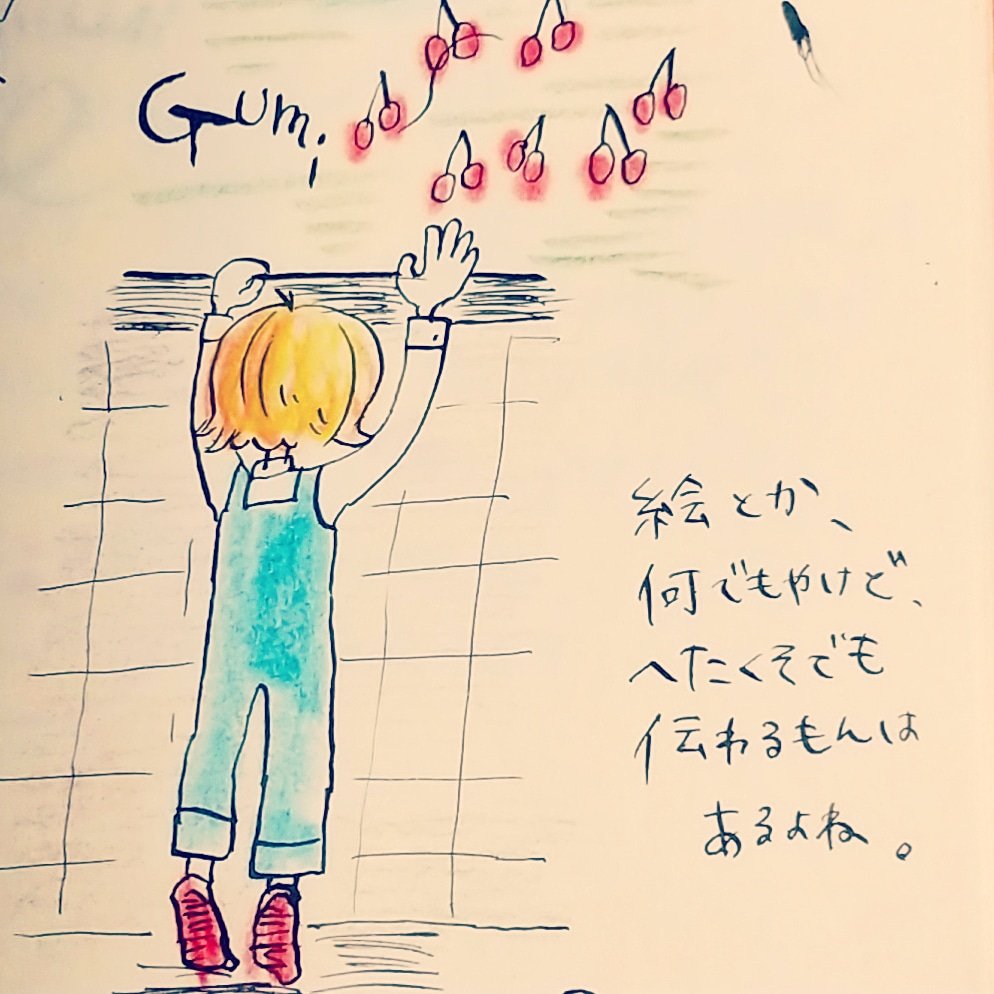 Gumi
絵とか、
何でもやけど、
へたくそでも
伝わるもんは
あるよね。